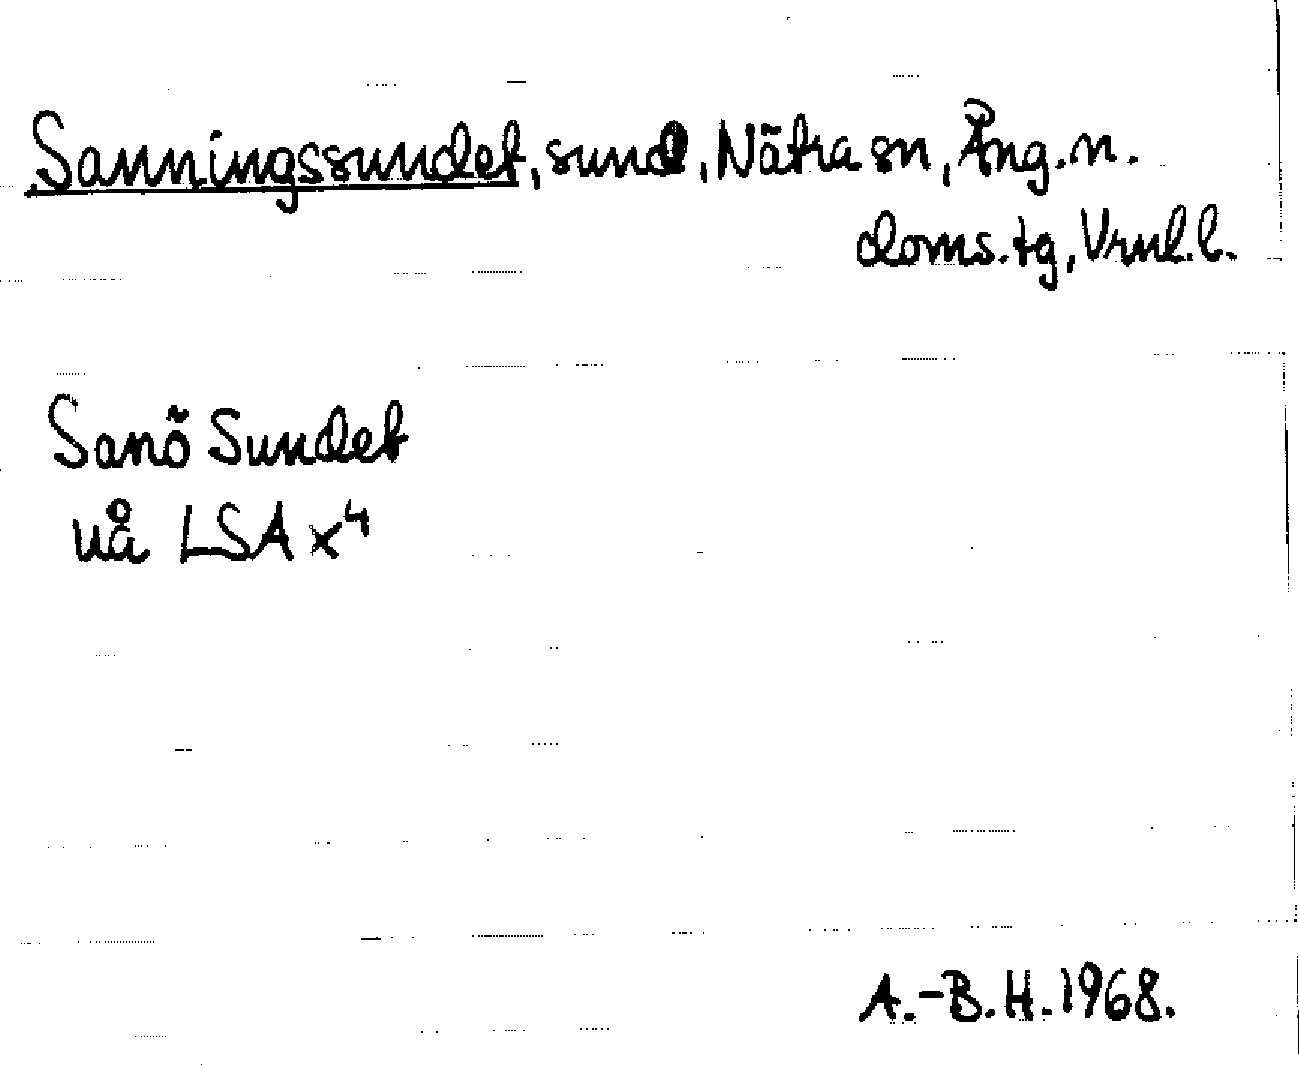 Sanningssundet, sund, Nätra sn, Ång. n.
doms. tg, Vrnl. l.
Sanö Sundet
uå LSA x⁴
A.-B. H. 1968.